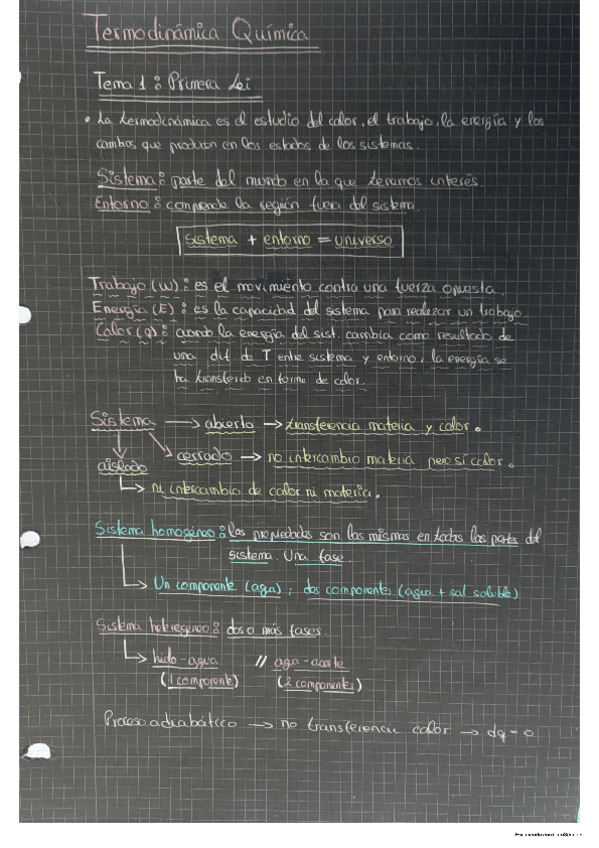 Termodinámica Química
Tema 1: Primera Lei
• La termodinámica es el estudio del calor, el trabajo, la energía y los
cambios que producen en los estados de los sistemas.
Sistema: parte del mundo en la que tenemos interés.
Entorno: comprende la región fuera del sistema.
sistema + entorno = universo
Trabajo (W): es el movimiento contra una fuerza opuesta.
Energía (E): es la capacidad del sistema para realizar un trabajo.
Calor (q): cuando la energía del sist. cambia como resultado de
una dif de T entre sistema y entorno, la energía se
ha transferido en forma de calor.
Sistema → abierto → transferencia materia y calor.
cerrado → no intercambio materia pero sí calor.
aislado
↳ ni intercambio de calor ni materia.
Sistema homogéneo: las propiedades son las mismas en todas las partes del
sistema. Una fase.
↳ Un componente (agua); dos componentes (agua + sal soluble)
Sistema heterogéneo: dos o más fases.
↳ hielo-agua // agua-aceite
(1 componente) (2 componentes)
Proceso adiabático → no transferencia calor → dq = 0